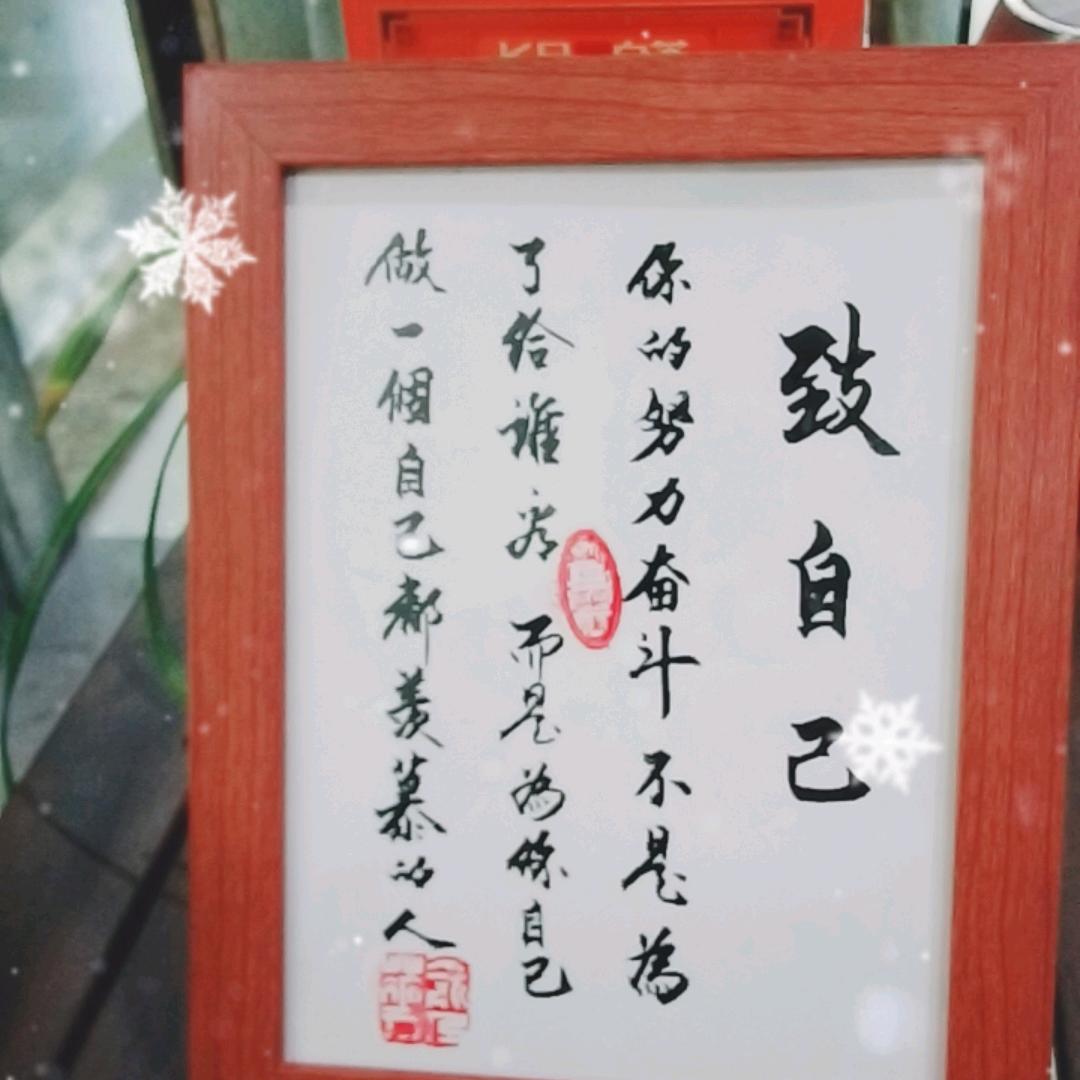 致自己
你的努力奋斗不是為
了給誰看而是為你自己
做一個自己都羡慕的人